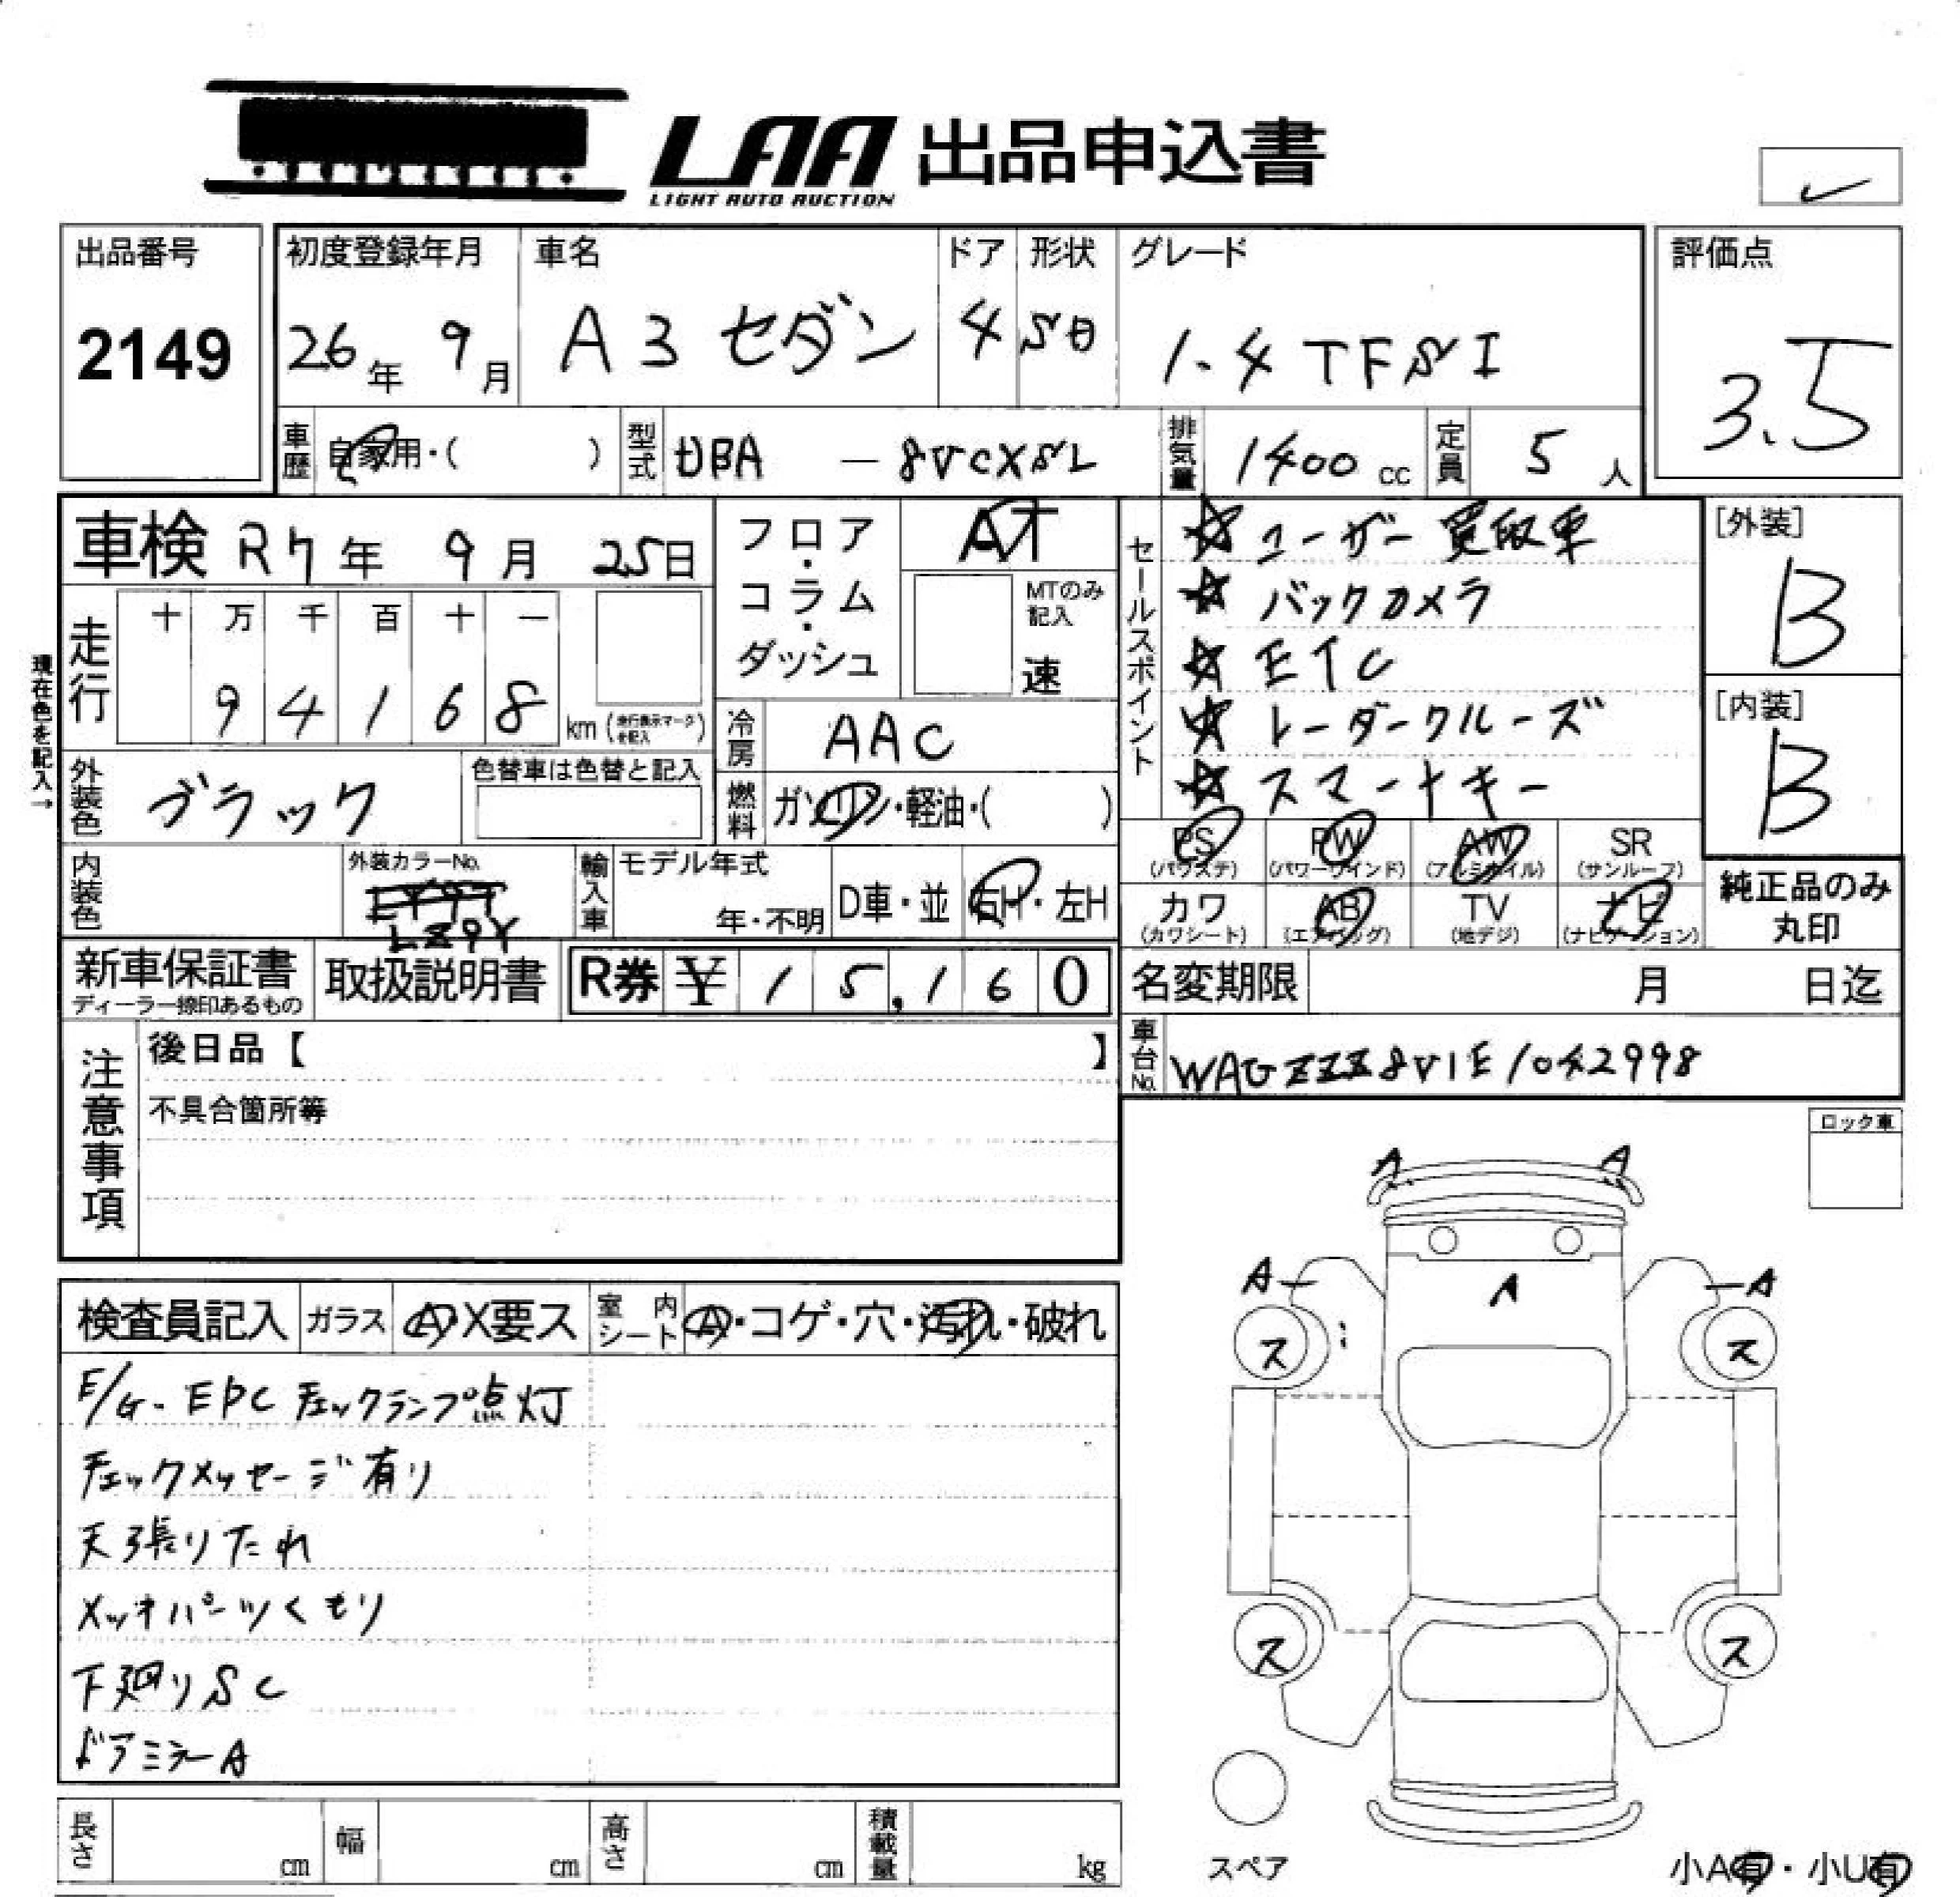 LAA 出品申込書
LIGHT AUTO AUCTION
出品番号
2149
初度登録年月
26年 9月
車名
A3 セダン
ドア
4
形状
SD
グレード
1.4 TFSI
評価点
3.5
車歴
自家用・( )
型式
DBA - 8VCXSL
排気量
1400 cc
定員
5 人
車検 R7年 9月 25日
走行
十 万 千 百 十 一
9 4 1 6 8
km (走行表示マークを記入)
現在色を記入→
外装色
ブラック
色替車は色替と記入
内装色
外装カラーNo.
LZ9Y
フロア・コラム・ダッシュ
AT
MTのみ記入
速
冷房
AAC
燃料
ガソリン・軽油・( )
輸入車
モデル年式
年・不明
D車・並
右H・左H
セールスポイント
☆ ユーザー買取車
☆ バックカメラ
☆ ETC
☆ レーダークルーズ
☆ スマートキー
[外装]
B
[内装]
B
PS (パワステ)
PW (パワーウインド)
AW (アルミホイル)
SR (サンルーフ)
カワ (カワシート)
AB (エアバッグ)
TV (地デジ)
ナビ (ナビゲーション)
純正品のみ丸印
新車保証書
ディーラー捺印あるもの
取扱説明書
R券 ¥ 1 5,1 6 0
名変期限 月 日迄
車台No.
WAUZZZ8V1E1042998
注意事項
後日品【 】
不具合箇所等
ロック車
検査員記入
ガラス
A・X要ス
室内シート
A・コゲ・穴・汚れ・破れ
E/G. EPC チェックランプ点灯
チェックメッセージ有り
天張りたれ
メッキパーツくもり
下廻りSC
ドアミラーA
A A
A A A
ス ス
ス ス
スペア
小A有・小U有
長さ cm
幅 cm
高さ cm
積載量 kg